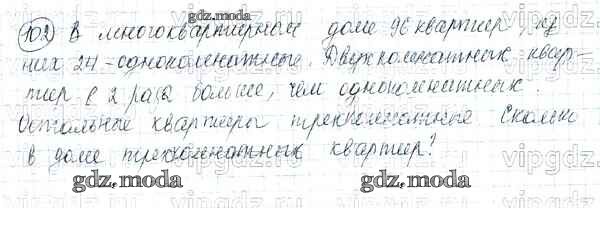 gdz.moda
102) В многоквартирном доме 96 квартир, из
них 24 - однокомнатные. Двухкомнатных квар-
тир в 2 раза больше, чем однокомнатных.
Остальные квартиры трехкомнатные Сколько
в доме трехкомнатных квартир?
gdz.moda gdz.moda